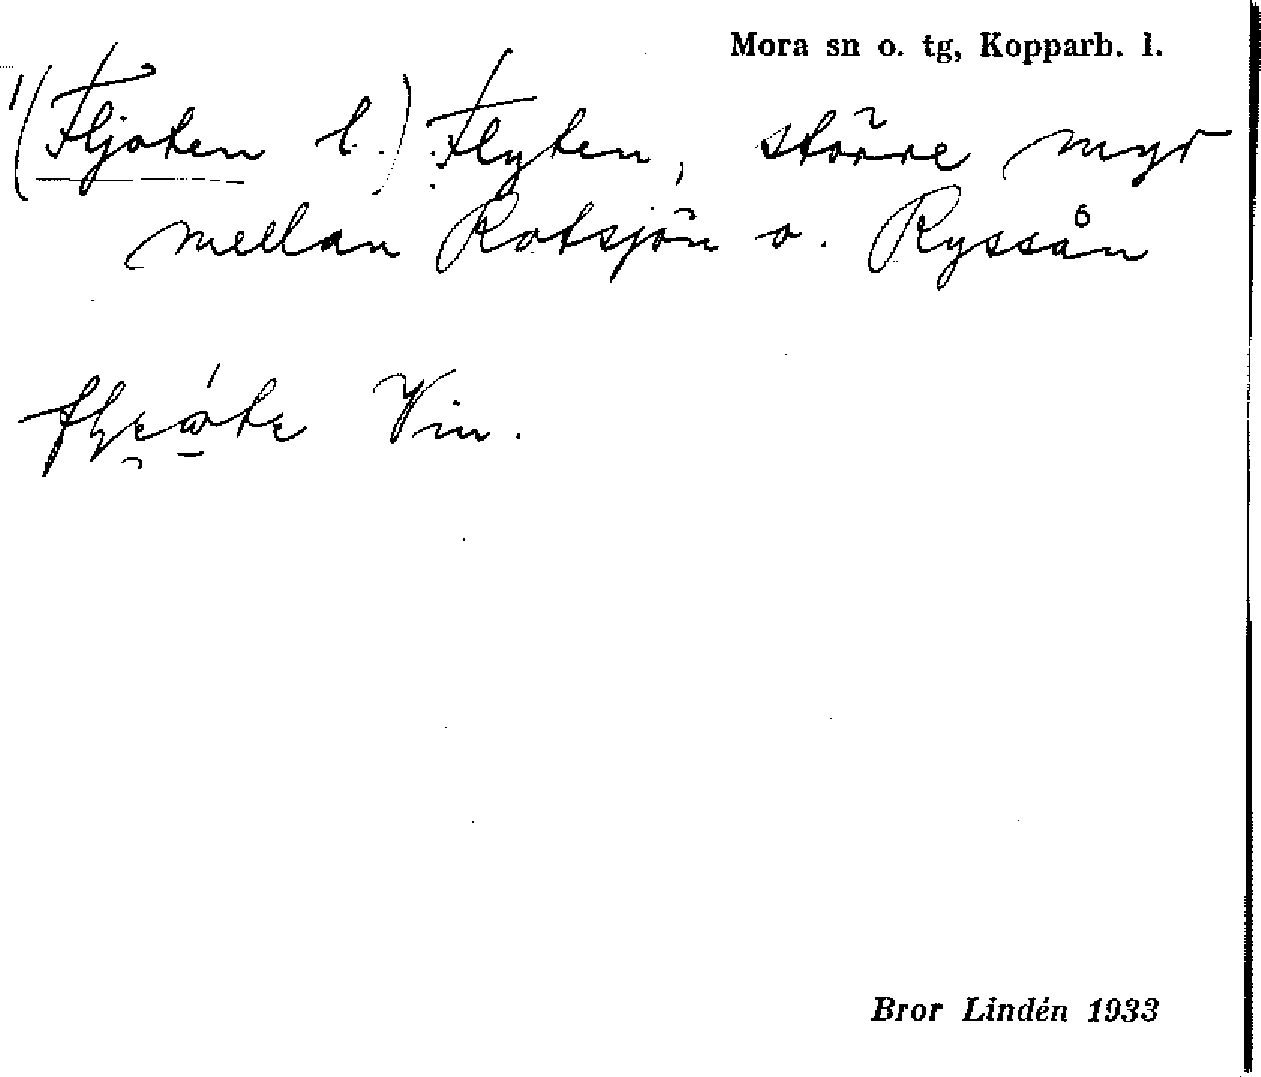 Mora sn o. tg, Kopparb. l.
1(Fljoten l.) Flyten, större myr
mellan Rotsjön o. Ryssån
Vin.
Bror Lindén 1933